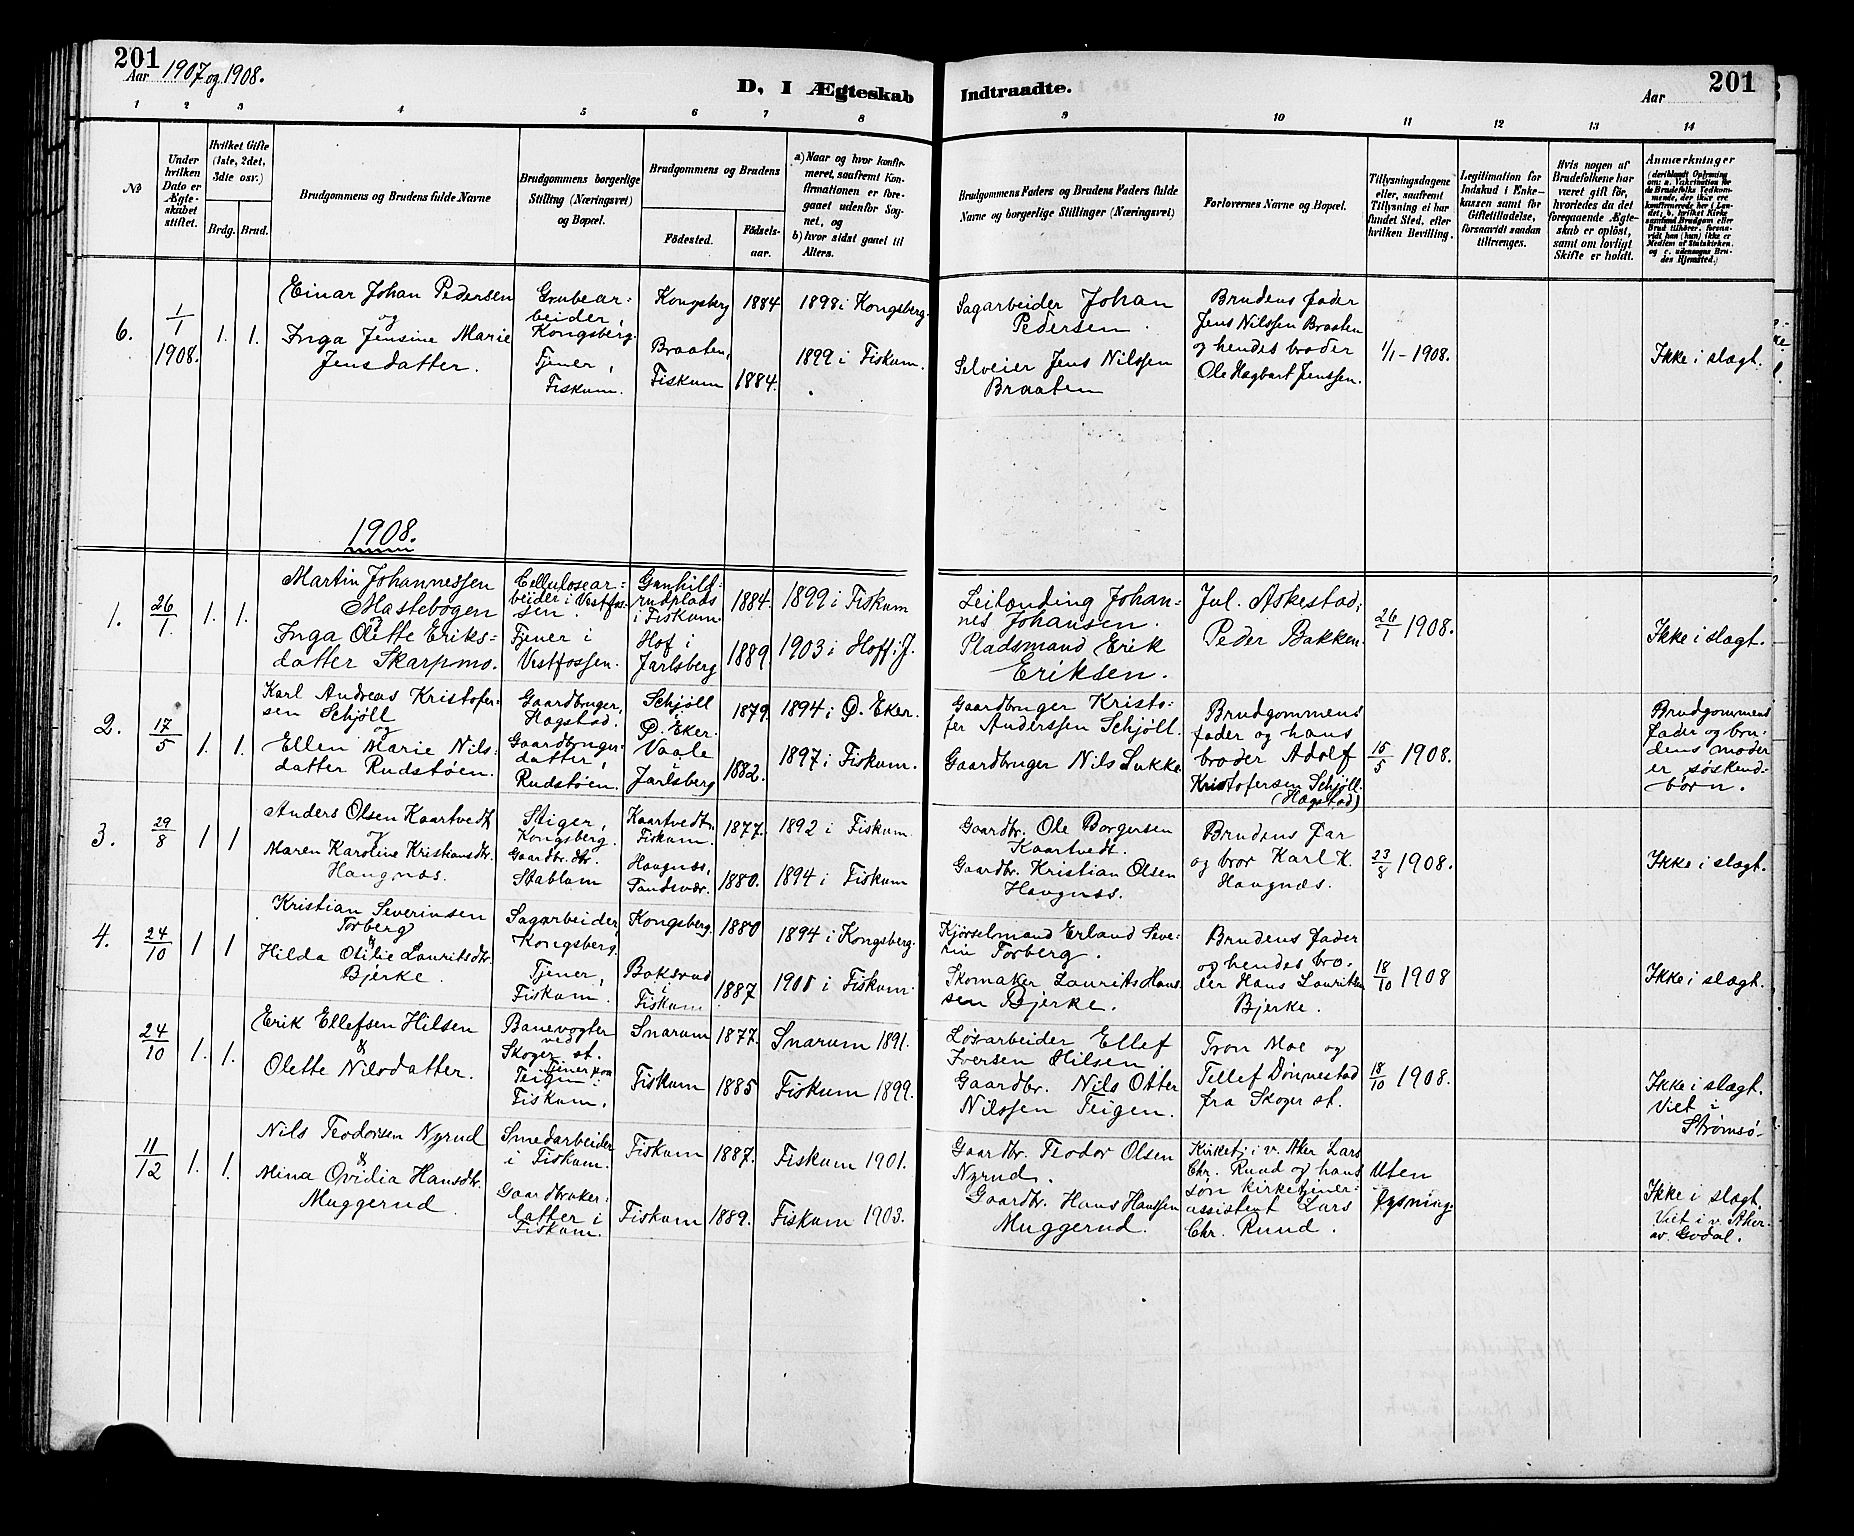 201
Aar 1907 og 1908.
D, I Ægteskab Indtraadte.
201
Aar
1 2 3 4 5 6 7 8 9 10 11 12 13 14
No
Under hvilken Dato er Ægteskabet stiftet.
Hvilket Gifte (1ste, 2det, 3dte osv.)
Brdg. Brud.
Brudgommens og Brudens fulde Navne
Brudgommens borgerlige Stilling (Næringsvei) og Bopæl.
Brudgommens og Brudens
Fødested.
Fødselsaar.
a) Naar og hvor konfirmeret, saafremt Konfirmationen er foregaaet udenfor Sognet, og
b) hvor sidst gaaet til Alters.
Brudgommens Faders og Brudens Faders fulde Navne og borgerlige Stillinger (Næringsvei)
Forlovernes Navne og Bopæl.
Tillysningsdagene eller, saafremt Tillysning ei har fundet Sted, efter hvilken Bevilling.
Legitimation for Indskud i Enkekassen samt for Giftetilladelse, forsaavidt saadan tiltrænges.
Hvis nogen af Brudefolkene har været gift før, hvorledes da det foregaaende Ægteskab er opløst, samt om lovligt Skifte er holdt.
Anmærkninger
(deriblandt Oplysning om: a. Vakcination for de Brudefolks Vedkommende, der ikke ere konfirmerede her i Landet; b. hvilket Kirkesamfund Brudgom eller Brud tilhører, forsaavidt han (hun) ikke er Medlem af Statskirken, og c. udensogns Brudes Hjemsted.)
6.
1/1 1908.
1. 1.
Einar Johan Pedersen
og
Inga Jensine Marie
Jensdatter.
Grubear-
beider,
Kongsberg.
Tjener,
Fiskum.
Kongsberg 1884
Braaten,
Fiskum 1884.
1898 i Kongsberg.
1899 i Fiskum.
Sagarbeider Johan
Pedersen.
Selveier Jens Nilssen
Braaten
Brudens fader
Jens Nilssen Braaten
og hendes broder
Ole Hagbart Jenssen.
1/1 - 1908.
Ikke i slægt.
1908.
1.
26/1.
1. 1.
Martin Johannessen
Mastebogen
Inga Olette Eriks=
datter Skarpmo.
Cellulosear=
beider i Vestfos-
sen.
Tjener i
Vestfossen.
Gunhild-
rudplads
i Fiskum
1884.
Hof i
Jarlsberg
1889
1899 i Fiskum
1903 i Hof i J.
Leilænding Johan-
nes Johansen.
Pladsmand Erik
Eriksen.
Jul. Askestad,
Peder Bakken.
26/1 1908.
Ikke i slægt.
2.
17/5
1. 1.
Karl Andreas Kristofer-
sen Schjøll
og
Ellen Marie Nils-
datter Rudstøen.
Gaardbruger,
Hagstad.
Gaardbruger-
datter,
Rudstøen.
Schjøll
i
Ø. Eker.
1879.
Vaale
i
Jarlsberg
1882.
1894 i Ø. Eker.
1897 i Fiskum.
Gaardbruger Kristo-
fer Anderssen Schjøll.
Gaardbruger Nils Lukke
Brudgommens
fader og hans
broder Adolf
Kristofersen Schjøll.
(Hagstad)
15/5 1908.
Brudgommens
fader og bru-
dens moder
er søskend-
børn.
3.
29/8
1 1
Anders Olsen Kaartvedt
Maren Karoline Kristiansdtr.
Haugnæs.
Stiger,
Kongsberg.
Gaardbr.dtr.
Stablum
Kaartvedt
Fiskum. 1877.
Haugnæs,
Sandsvær. 1880.
1892 i Fiskum.
1894 i Fiskum
Gaardbr. Ole Borgersen
Kaartvedt.
Gaardbr. Kristian Olsen
Haugnæs.
Brudens far
og bror Karl K.
Haugnæs.
23/8 1908.
Ikke i slægt.
4.
24/10
1 1
Kristian Severinsen
Torberg
&
Hilda Otilie Lauritsdtr.
Bjerke.
Sagarbeider,
Kongsberg.
Tjener,
Fiskum.
Kongsberg. 1880
Baksrud
i
Fiskum 1887
1894 i Kongsberg.
1901 i Fiskum.
Kjørselsmand Erland Seve-
rin Torberg.
Skomaker Laurits Hans-
sen Bjerke.
Brudens fader
og hendes bro-
der Hans Lauritsen
Bjerke.
18/10 1908
Ikke i slægt.
24/10
1. 1.
Erik Ellefsen Hilsen
&
Olette Nilsdatter.
Banevogter
ved
Skoger st.
Tjener paa
Teigen i
Fiskum.
Snarum 1877.
Fiskum 1885
Snarum 1891.
Fiskum 1899.
Løsarbeider Ellef
Iversen Hilsen
Gaardbr. Nils Otter
Nilssen Teigen.
Tron Moe og
Tellef Dønnestad
fra Skoger st.
18/10 1908.
Ikke i slægt.
Viet i
Strømsø.
11/12
1. 1.
Nils Teodorsen Nyrud
&
Mina Ovidia Hansdtr.
Muggerud.
Smedarbeider
i Fiskum.
Gaardbruker-
datter i
Fiskum.
Fiskum 1887.
Fiskum 1889.
Fiskum 1901.
Fiskum 1903.
Gaardbr. Teodor Olsen
Nyrud.
Gaardbr. Hans Hanssen
Muggerud.
Kirketj. i v. Aker Lars
Chr. Ruud og hans
søn kirketjener-
assistent Lars
Chr. Ruud.
Uten
lysning.
Ikke i slægt.
Viet i v. Aker
av Godal.